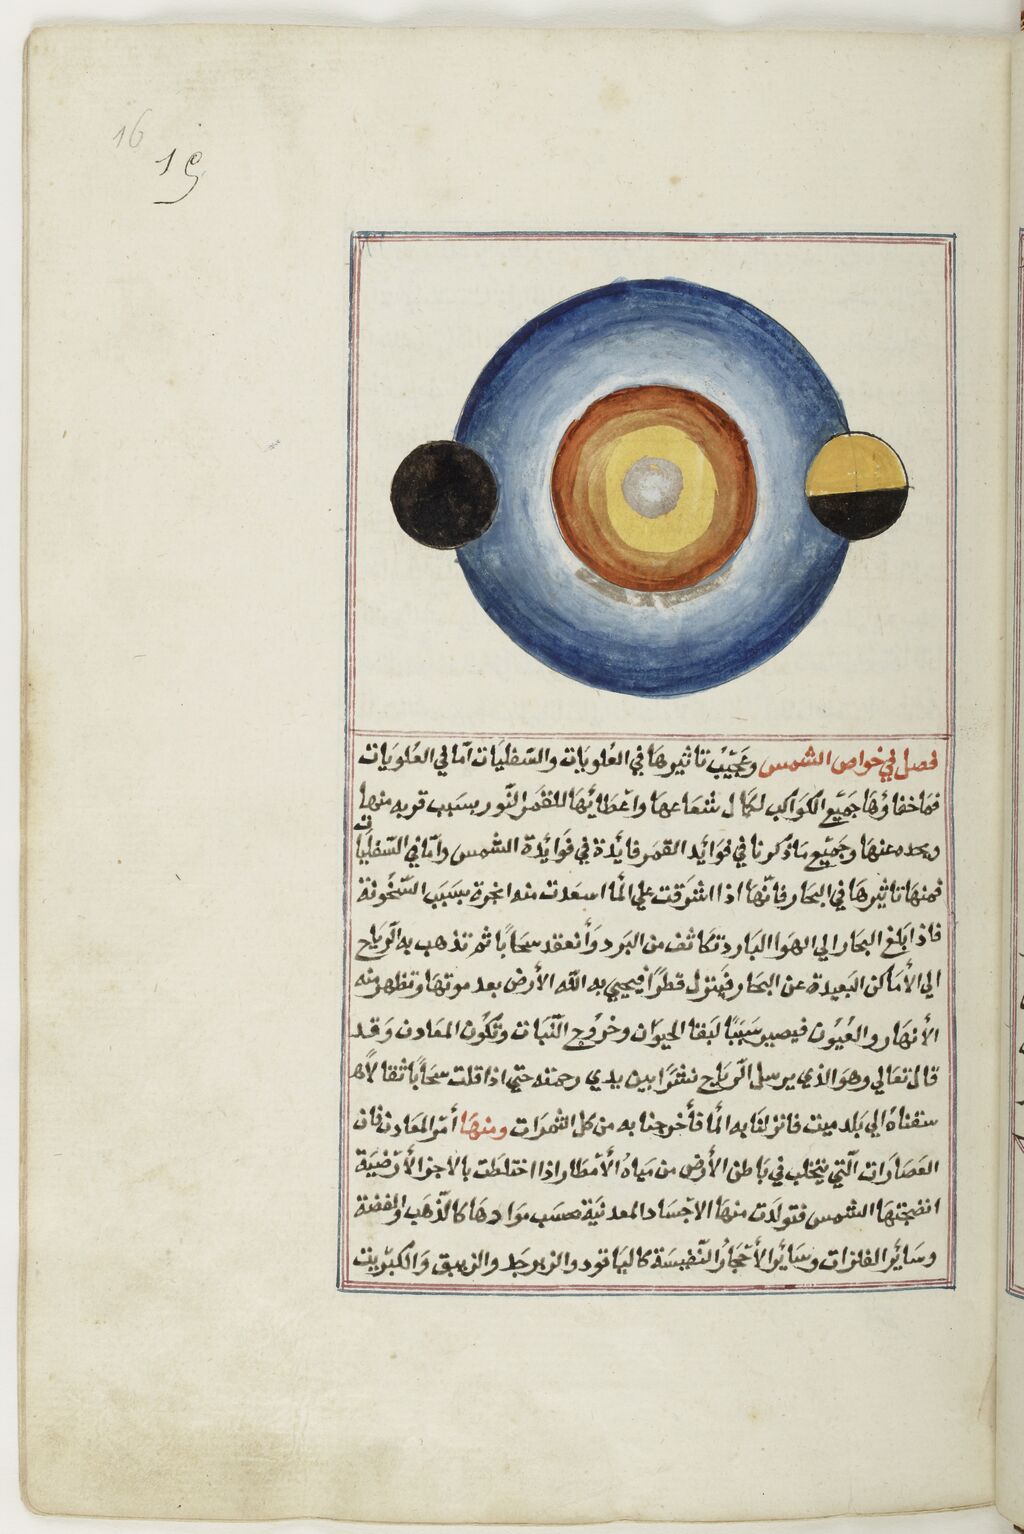 16
19
فصل في خواص الشمس وعجيب تاثيرها في العلويات والسفليات اما في العلويات
فمنها خفاؤها جميع الكواكب لكمال شعاعها واعطائها للقمر النور بسبب قربه منها
وبعده عنها وجميع ماذكرنا في فوايد القمر فايدة في فوايدة الشمس واما في السفليات
فمنها تاثيرها في البحار فانها اذا اشرقت علي الما اسعدت منه ابخرة بسبب السخونة
فاذا بلغ البخار الي الهوا البارد تكاثف من البرد وأنعقد سحابا ثم تذهب به الرياح
الي الأماكن البعيدة عن البحار فينزل قطرا فيحيي به الله الأرض بعد موتها وتظهر منه
الأنهار والعيون فيصير سببا لبقا الحيوان وخروج النبات وتكون المعادن وقد
قال تعالي وهو الذي يرسل الرياح نشرا بين يدي رحمته حتي اذا اقلت سحابا ثقالا
سقناه الي بلد ميت فانزلنا به الما فأخرجنا به من كل الثمرات ومنها أمر المعادن فان
العصارات التي يتحلب في باطن الأرض من مياه الأمطار اذا اختلطت بالاجزا الأرضية
انضجتها الشمس فتولدت منها الاجساد المعدنية بحسب موادها كالذهب والفضة
وساير الفلزات وساير الأحجار النفيسة كالياقود والزبرجد والزيبق والكبريت